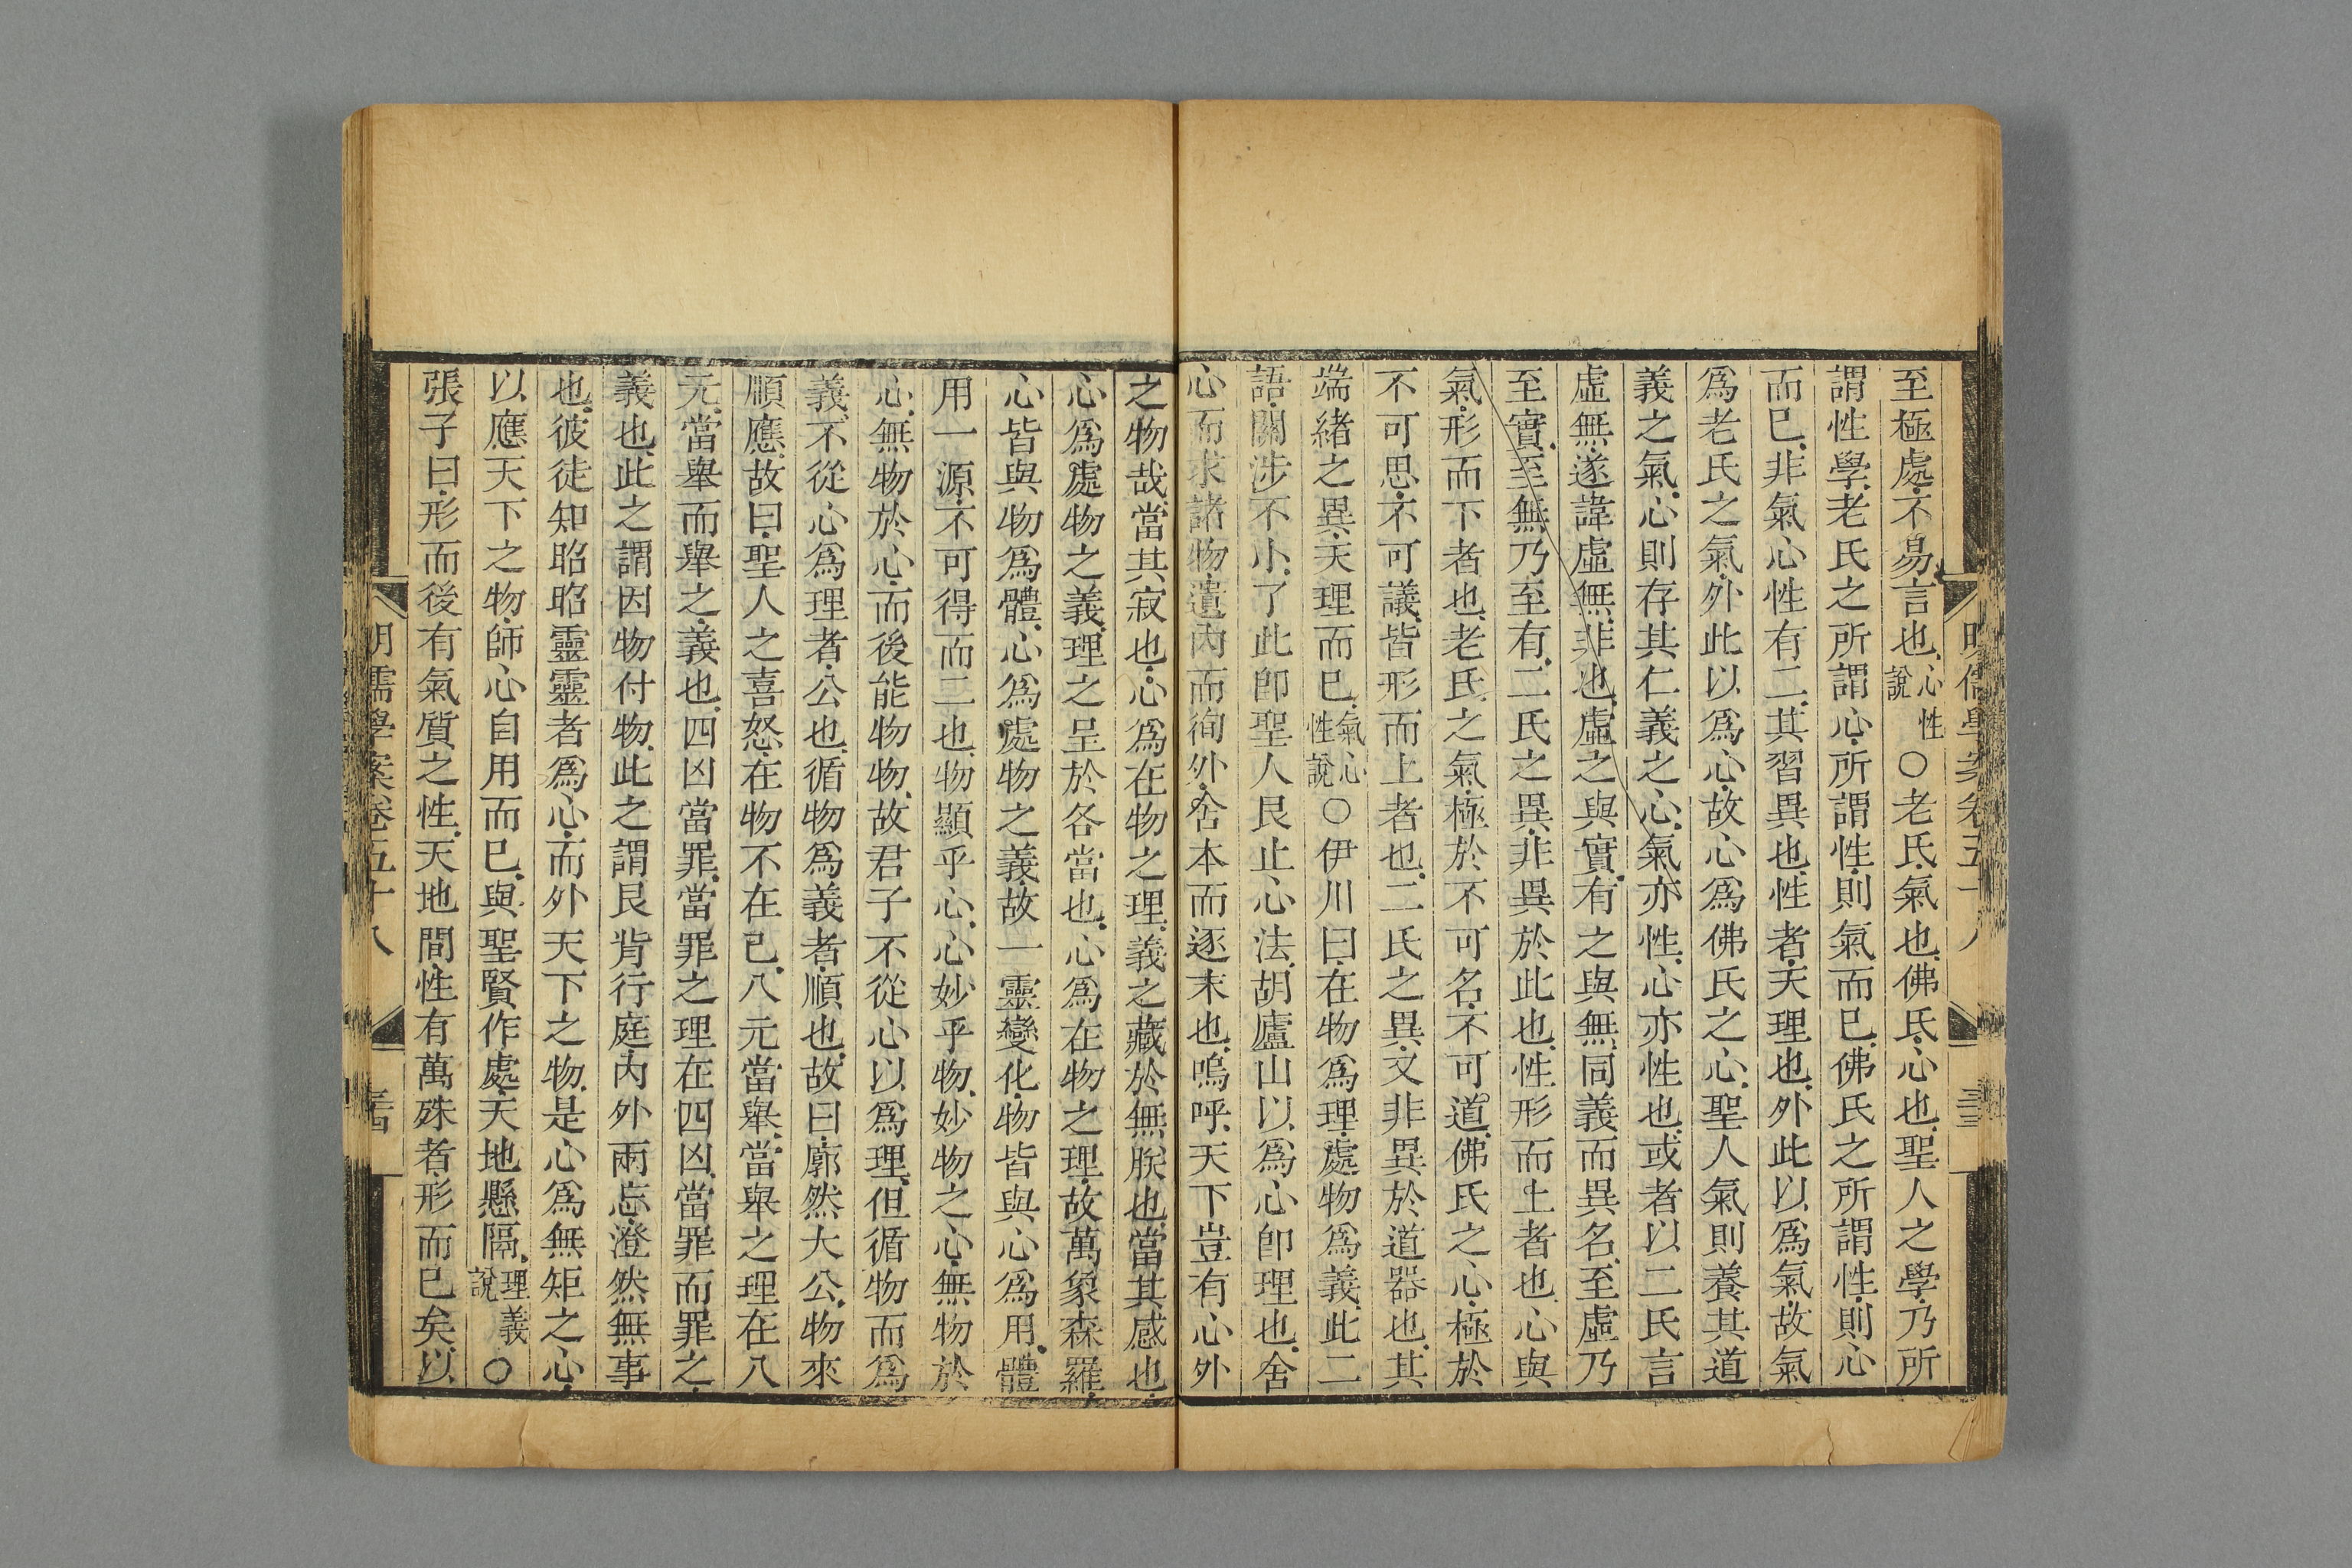 至極處不易言也心性說○老氏氣也佛氏心也聖人之學乃所
謂性學老氏之所謂心所謂性則氣而已佛氏之所謂性則心
而已非氣心性有二其習異也性者天理也外此以爲氣故氣
爲老氏之氣外此以爲心故心爲佛氏之心聖人氣則養其道
義之氣心則存其仁義之心氣亦性心亦性也或者以二氏言
虛無遂諱虛無非也虛之與實有之與無同義而異名至虛乃
至實至無乃至有二氏之異非異於此也性形而上者也心與
氣形而下者也老氏之氣極於不可名不可道佛氏之心極於
不可思不可議皆形而上者也二氏之異又非異於道器也其
端緒之異天理而已氣心性說○伊川曰在物爲理處物爲義此二
語關涉不小了此卽聖人艮止心法胡廬山以爲心卽理也舍
心而求諸物遺內而徇外舍本而逐末也嗚呼天下豈有心外
之物哉當其寂也心爲在物之理義之藏於無朕也當其感也
心爲處物之義理之呈於各當也心爲在物之理故萬象森羅
心皆與物爲體心爲處物之義故一靈變化物皆與心爲用體
用一源不可得而二也物顯乎心心妙乎物妙物之心無物於
心無物於心而後能物物故君子不從心以爲理但循物而爲
義不從心爲理者公也循物爲義者順也故曰廓然大公物來
順應故曰聖人之喜怒在物不在己八元當舉當舉之理在八
元當舉而舉之義也四凶當罪當罪之理在四凶當罪而罪之
義也此之謂因物付物此之謂艮背行庭內外兩忘澄然無事
也彼徒知昭昭靈靈者爲心而外天下之物是心爲無矩之心
以應天下之物師心自用而已與聖賢作處天地懸隔理義說○
張子曰形而後有氣質之性天地間性有萬殊者形而已矣以
明儒學案卷五十八
三十四